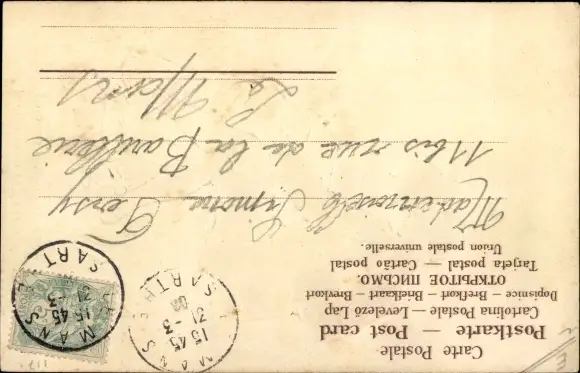 Carte Postale
Postkarte — Post card
Cartolina Postale — Levelező Lap
Dopisnice — Brefkort — Briefkaart — Brevkort
ОТКРЫТОЕ ПИСЬМО.
Tarjeta postal — Cartão postal
Union postale universelle.
MANS
15 45
31 -3
SARTHE
MANS
15 45
31 -3
SARTHE
Mademoiselle Simone
11bis rue de la
Le Mans